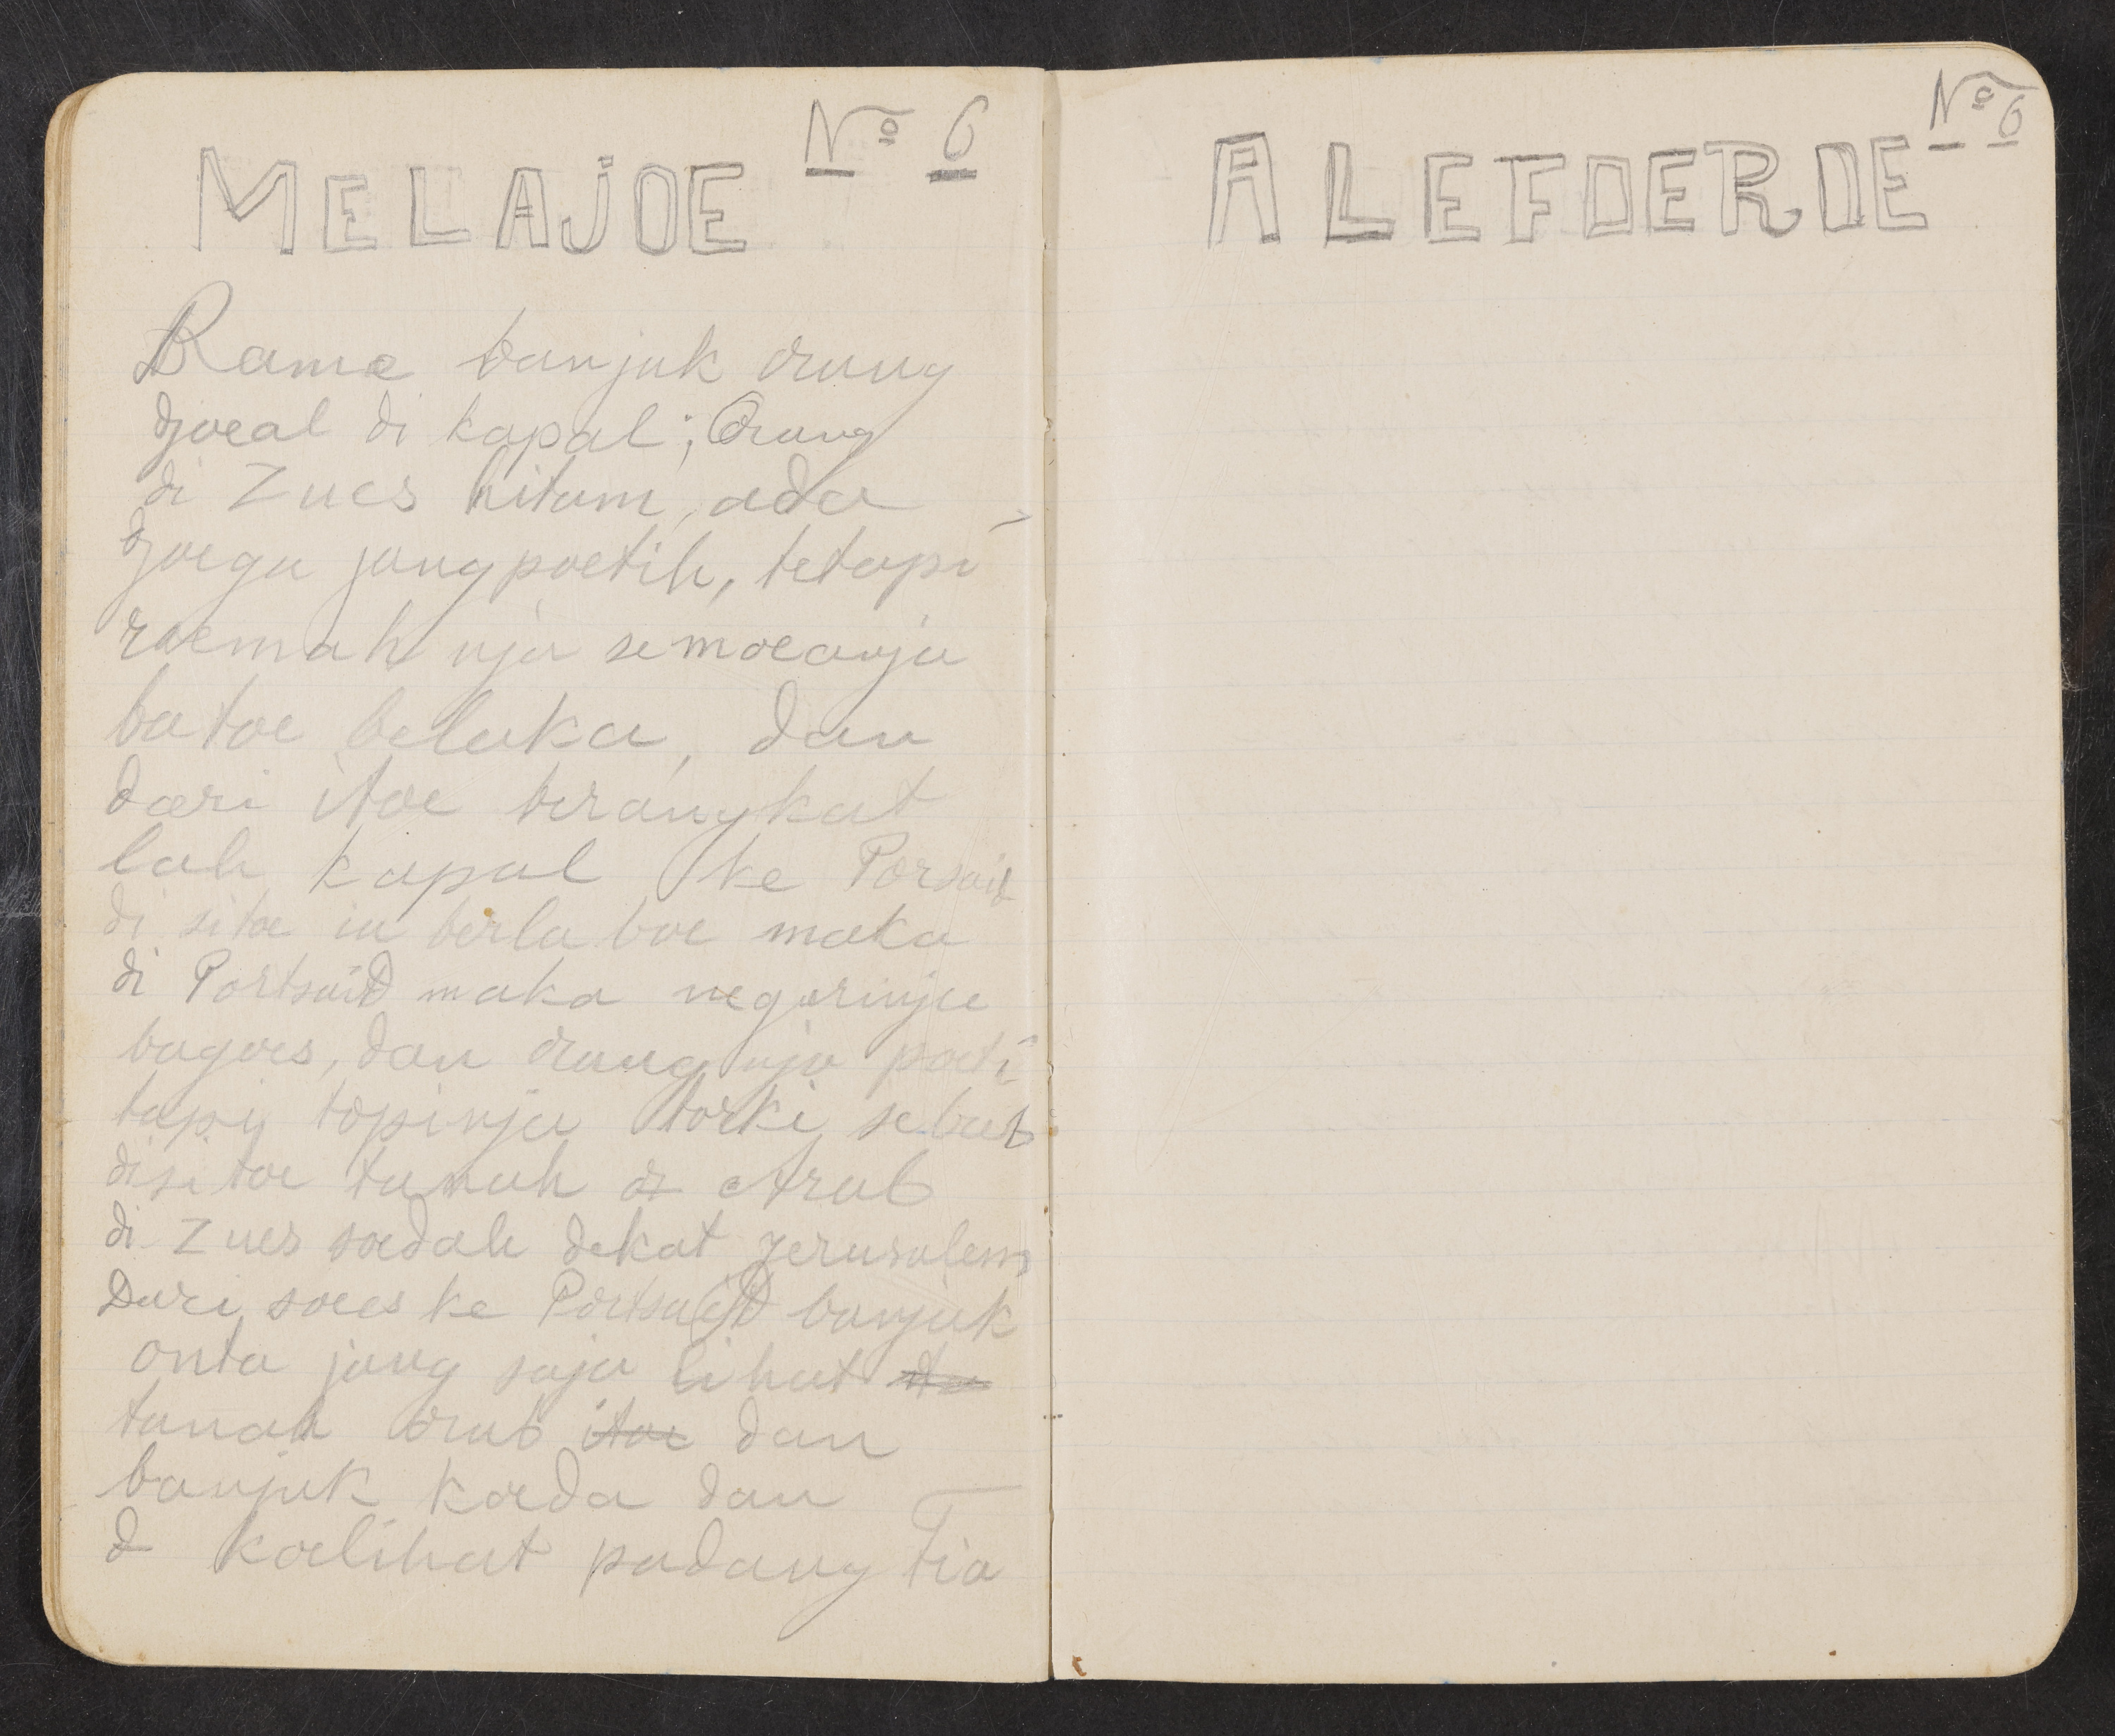 MELAJOE No 6
Rame banjak orang
djoeal di kapal; Orang
di Zues hitam, ada
djoega jang poetih, tetapi
roemah nja semoeanja
batoe belaka, dan
dari itoe berangkat
lah kapal ke Porsaid
di sitoe ia berlaboe maka
di Portsaid maka negerinja
bagoes, dan orang nja poeti
tapi topinja torki sebab
disitoe tanah di Arab
di Zues soedah dekat Jerusalem
Dari soees ke Portsaid banjak
onta jang saja lihat
tanah arab itoe dan
banjak koeda dan
d koelihat padang Tia
ALEFDERDE No 6